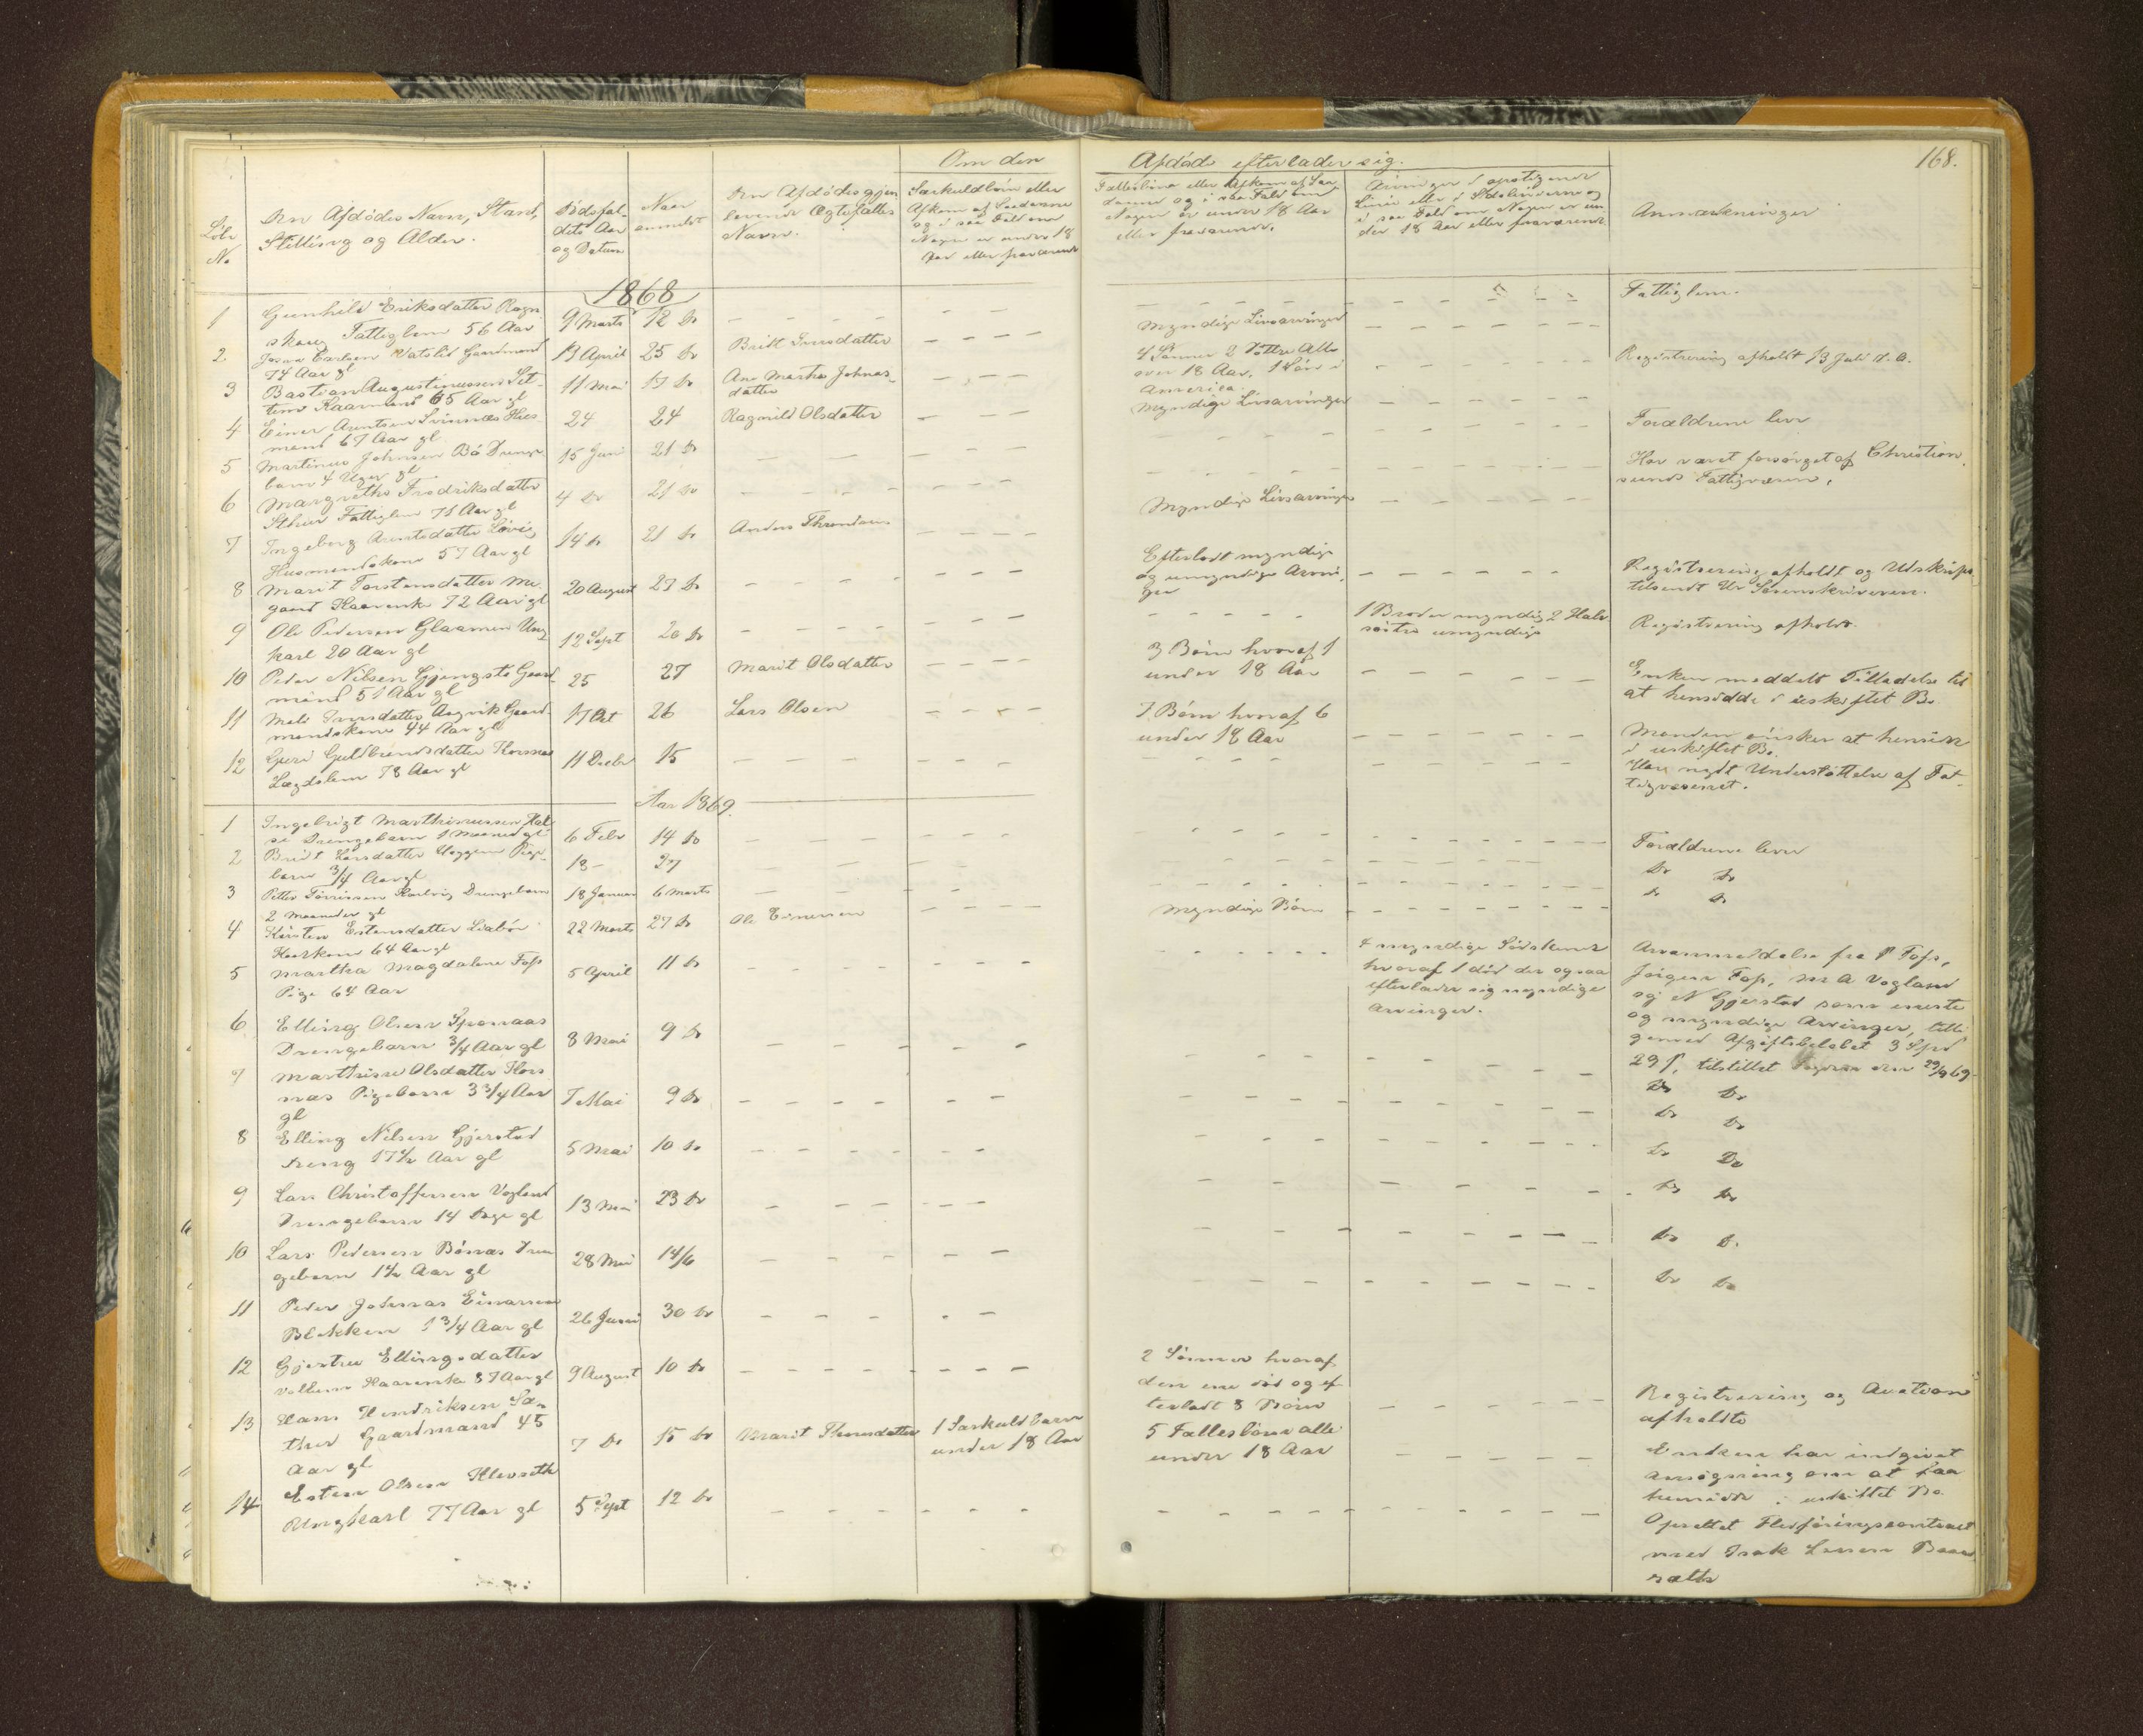 168.
Om den Afdøde efterlader sig.
Løbe No
Den Afdødes Navn, Stand, Stilling og Alder.
Dødsfaldets Aar og Datum
Naar anmeldt
Den Afdødes gjenlevende Ægtefælles Navn.
Særkuldbørn eller Afkom af Saadanne og i saa Fald om Nogen er under 18 Aar eller fraværende
Fællesbørn eller Afkom af Saadanne og i saa Fald om Nogen er under 18 Aar eller fraværende.
Arvinger i opstigende Linie eller i Sidelinierne og i saa Fald om Nogen er under 18 Aar eller fraværende
Anmærkninger
1868
1 Gunhild Eriksdatter Rognskoug Fattiglem 56 Aar 9 Marts 12 do Fattiglem.
2 Vatslid Gaardmand 74 Aar gl 13 April 25 do Britt Iversdatter Myndige Livsarvinger
3 Bastian Augustinussen 65 Aar gl 11 Mai 17 do Ane Martha Johnasdatter 4 Sønner 2 Døttre Alle over 18 Aar, 1 Søn i America. Registrering afholdt 13 Juli d. A.
4 Einer Arentsen Svinnæs Husmand 67 Aar gl 24 24 Ragnild Olsdatter Myndige Livsarvinger
5 Martinus Johnsen Bø Drengebarn 4 Uger gl 15 Juni 21 do Forældrene lever
6 Margrethe Fredriksdatter Fattiglem 71 Aar gl 4 do 21 do Har været forsørget af Christiansunds Fattigvæsen.
7 Ingeborg Arentsdatter Løvig Husmandskone 57 Aar gl 14 do 21 do Anders Myndige Livsarvinger
8 Marit Torstensdatter Megaard Kaarenke 72 Aar gl 20 August 27 do Efterladt myndige og umyndige Arvinger Registrering afholdt og Udskrift tilsendt Hr Sorenskriveren.
9 Ole Pedersen Glaamen Ungkarl 20 Aar gl 12 Sept 26 do 1 Broder myndig 2 Halvsøstre umyndige Registrering afholdt
10 Peder Nilsen Gjengstø Gaardmand 51 Aar gl 25 27 Marit Olsdatter 3 Børn hvoraf 1 under 18 Aar Enken meddelt Tilladelse til at hensidde i uskiftet Bo
11 Mali Iversdatter Aagvik Gaardmandskone 44 Aar gl 17 Oct 26 Lars Olsen 7 Børn hvoraf 6 under 18 Aar Manden ønsker at hensidde i uskiftet Bo.
12 Guri Guldbrandsdatter Korsnæs Lægdslem 78 Aar gl 11 Decbr 15 Har nydt Understøttelse af Fattigvæsenet.
Aar 1869.
1 Ingebrigt Marthinussen Drengebarn 1 Maaned gl 6 Febr 14 do Forældrene lever
2 Brit Larsdatter Pigebarn 3/4 Aar gl 13 - 27 do do
3 Petter Drengebarn 2 Maaneder gl 18 Januar 6 Marts do do
4 Kirsten Estensdatter Liabøe Kaarkone 64 Aar gl 22 Marts 27 do Ole Einersen Myndige Børn
5 Martha Magdalene Foss Pige 64 Aar 5 April 11 do 4 myndige Sødskende hvoraf 1 død der ogsaa efterlader sig myndige arvinger. Arvanmeldelse fra P Foss, Jørgen Foss, M A Vogland og N Gjerstad som eneste og myndige Arvinger, tilligemed Afgiftsbeløbet 3 Spd 29 s, tilstillet Fogden den 29/9 69.
6 Elling Olsen Drengebarn 3/4 Aar gl 8 Mai 9 do do do
7 Marthine Olsdatter Korsnæs Pigebarn 3 3/4 Aar gl 7 Mai 9 do do do
8 Elling Nilsen Gjerstad Dreng 17 1/2 Aar gl 5 Mai 10 do do do
9 Lars Christoffersen Vogland Drengebarn 14 Dage gl 13 Mai 23 do do do
10 Lars Pedersen Bønæs Drengebarn 1 1/2 Aar gl 28 Mai 14/6 do do
11 Peder Johnas Einarsen Blekken 1 3/4 Aar gl 26 Juni 30 do do do
12 Gjertru Ellingsdatter Kaarenke 87 Aar gl 9 August 10 do 2 Sønner hvoraf den ene død og efterladt 8 Børn Registrering og Auction afholdt
13 Hans Hendriksen Sæther Gaardmand 45 Aar gl 7 do 15 do Marit 1 Særkuldbarn under 18 Aar 5 Fællesbørn alle under 18 Aar Enken har indgivet ansøgning om at faa hensidde i uskiftet Bo
14 Esten Olsen Ungkarl 77 Aar gl 5 Sept 12 do Oprettet Flødføringscontract med Isak